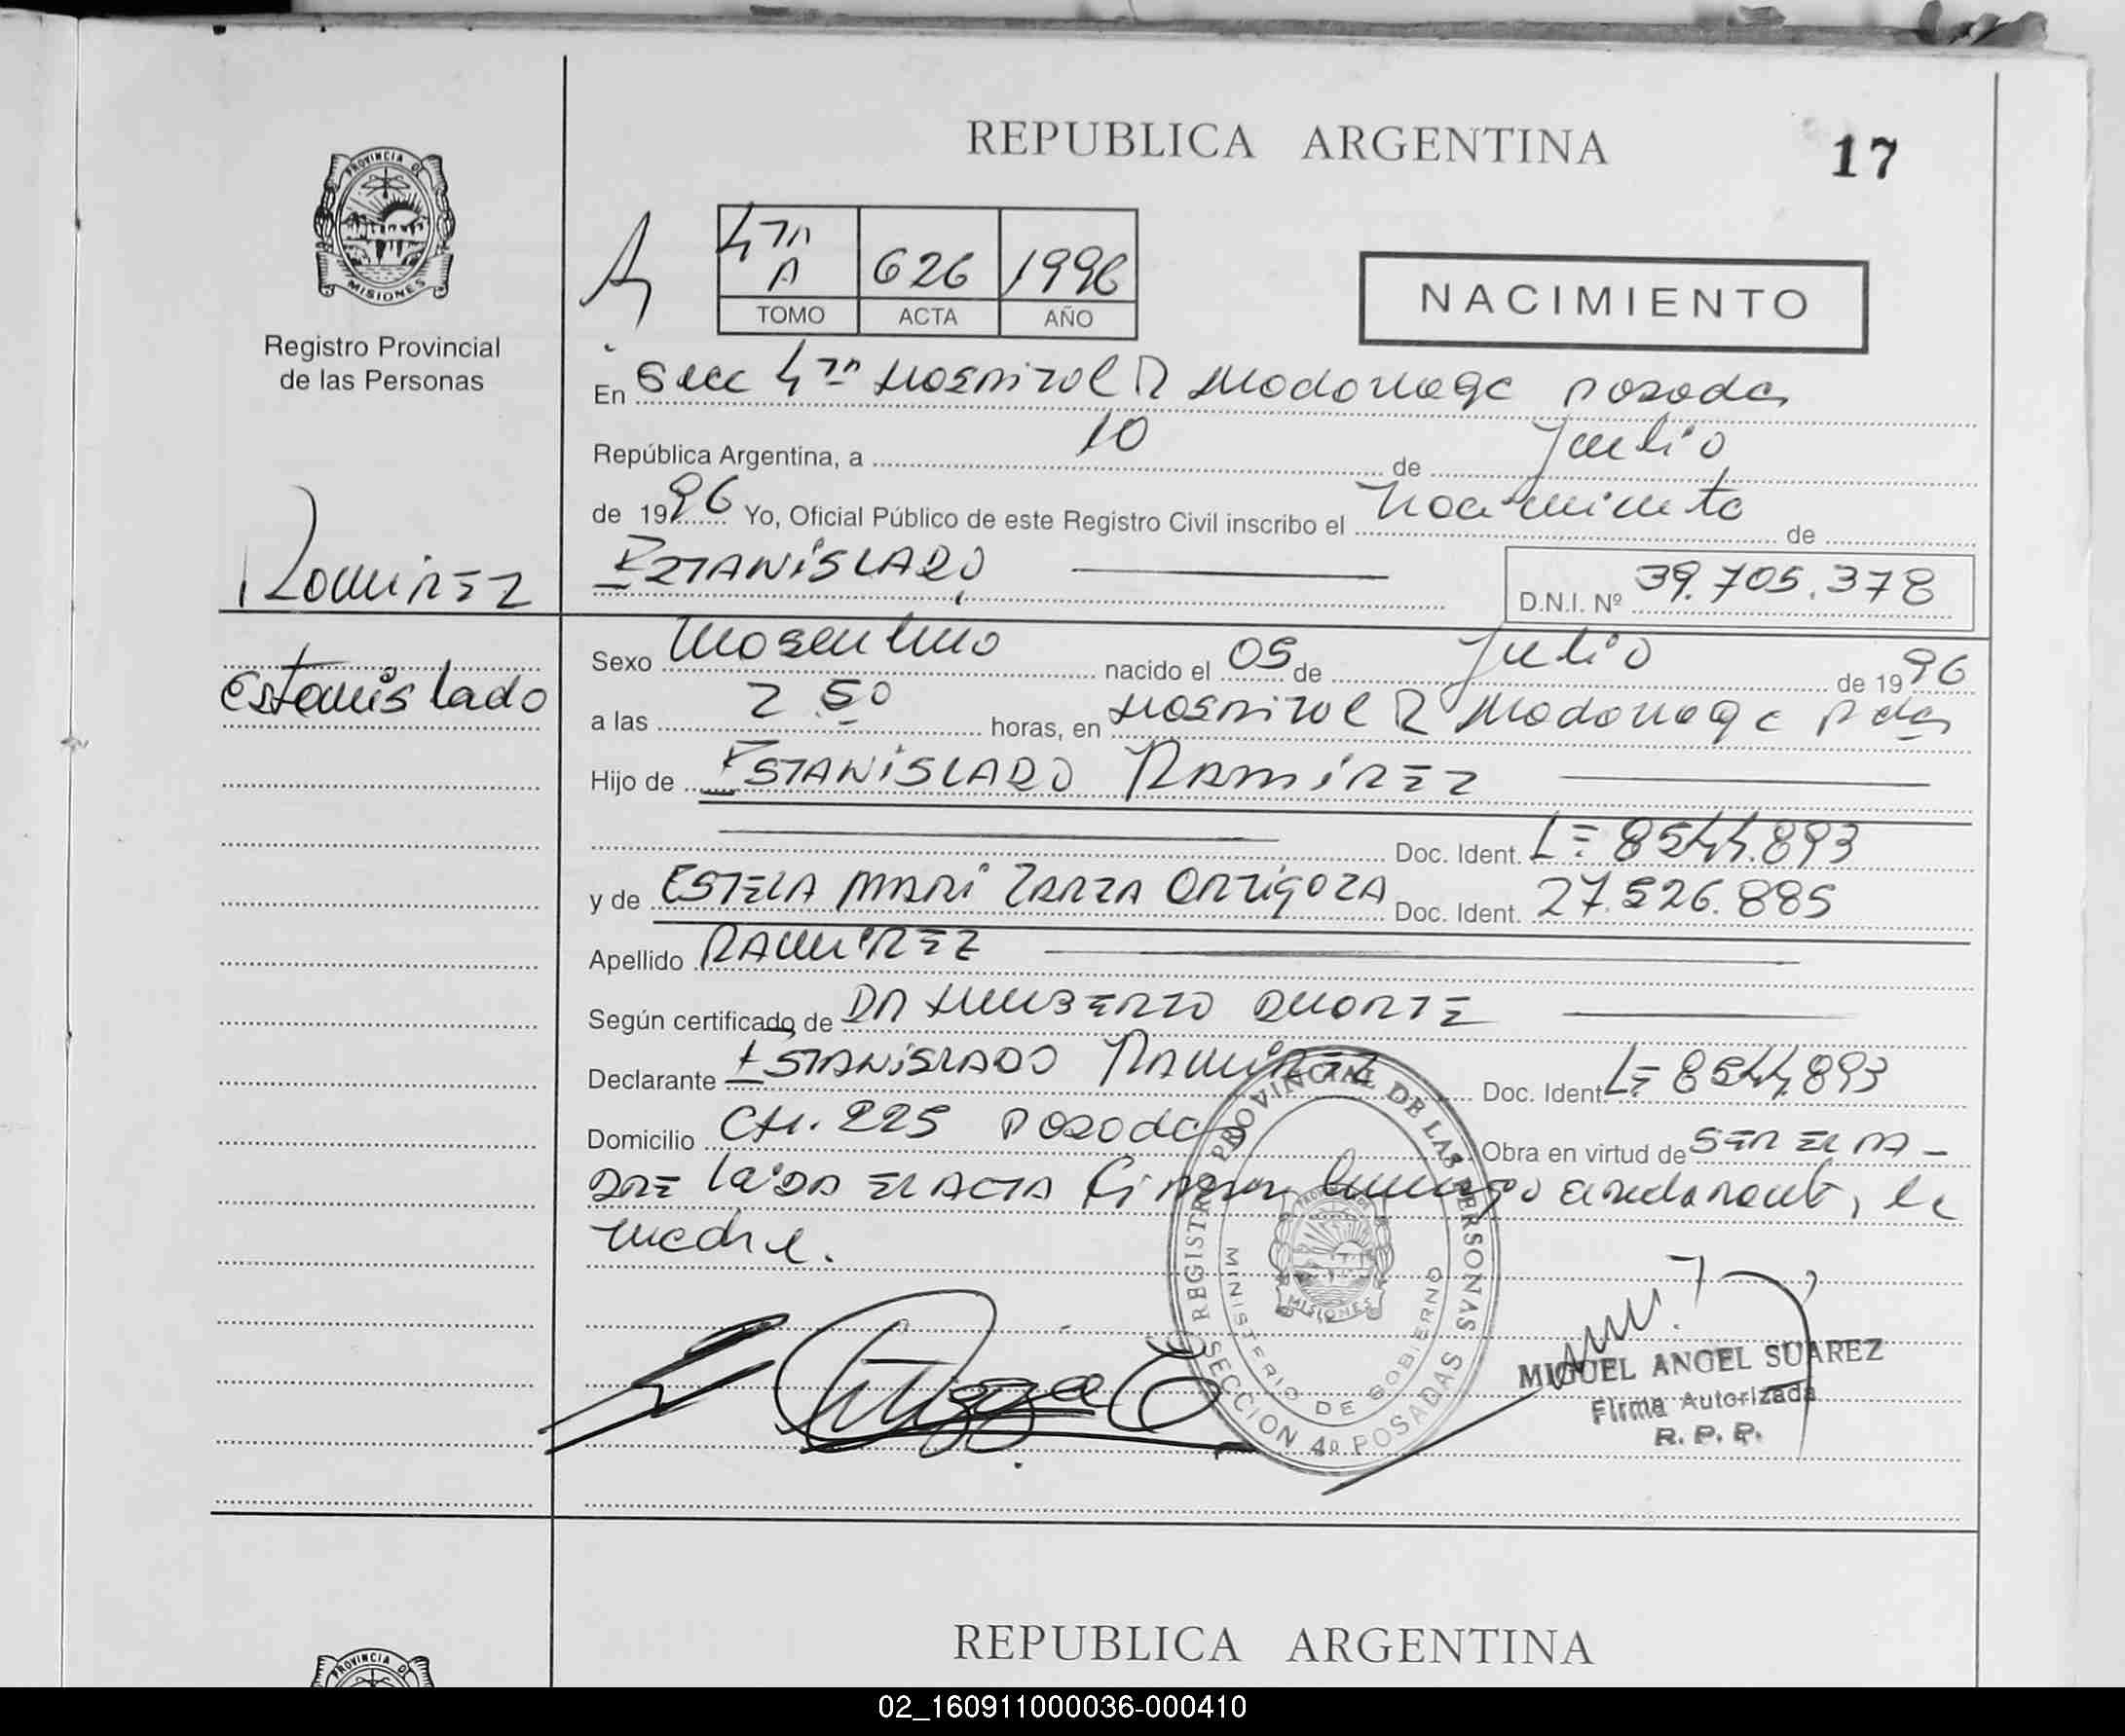 REPUBLICA ARGENTINA
17
PROVINCIA D
MISIONES
Registro Provincial
de las Personas
4ta A 626 1996
TOMO ACTA AÑO
NACIMIENTO
En Secc 4ta Hospital R Madariaga Posadas
República Argentina, a 10 de Julio
de 1996 Yo, Oficial Público de este Registro Civil inscribo el Nacimiento de
ESTANISLADO
D.N.I. Nº 39.705.378
Ramirez
Estanislado
Sexo Masculino nacido el 05 de Julio de 1996
a las 2 50 horas, en Hospital R Madariaga Pdas
Hijo de ESTANISLADO RAMIREZ
Doc. Ident. LE 8544.893
y de ESTELA MARI ZARZA ORTIGOZA Doc. Ident. 27.526.885
Apellido RAMIREZ
Según certificado de DR HUMBERTO DUARTE
Declarante ESTANISLADO RAMIREZ Doc. Ident. LE 8544.893
Domicilio CH. 225 Posadas Obra en virtud de SER EL PA-
DRE Leida EL ACTA Firman conmigo el declarante, la
madre.
REGISTRO PROVINCIAL DE LAS PERSONAS
SECCION 4ª POSADAS
MINISTERIO DE GOBIERNO
MISIONES
MIGUEL ANGEL SUAREZ
Firma Autorizada
R. P. P.
REPUBLICA ARGENTINA
PROVINCIA D
02_160911000036-000410